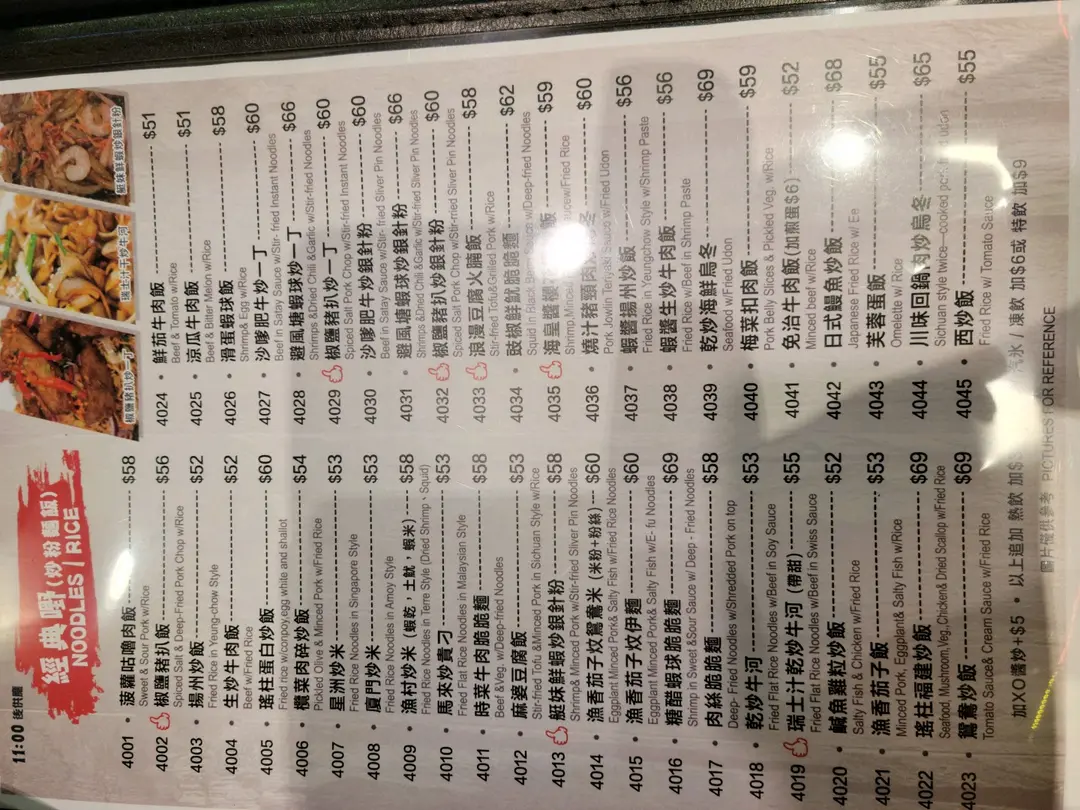 11:00 後供應
經典嘢(炒粉麵飯)
NOODLES | RICE
4001 • 菠蘿咕嚕肉飯 $58
Sweet & Sour Pork w/Rice
4002 • 椒鹽豬扒飯 $56
Spiced Salt & Deep-Fried Pork Chop w/Rice
4003 • 揚州炒飯 $52
Fried Rice in Yeung-chow Style
4004 • 生炒牛肉飯 $52
Beef w/Fried Rice
4005 • 瑤柱蛋白炒飯 $60
Fried rice w/conpoy,egg white and shallot
4006 • 欖菜肉碎炒飯 $54
Pickled Olive & Minced Pork w/Fried Rice
4007 • 星洲炒米 $53
Fried Rice Noodles in Singapore Style
4008 • 廈門炒米 $53
Fried Rice Noodles in Amoy Style
4009 • 漁村炒米 (蝦乾，土魷，蝦米) $58
Fried Rice Noodles in Terre Style (Dried Shrimp、Squid)
4010 • 馬來炒貴刁 $53
Fried Flat Rice Noodles in Malaysian Style
4011 • 時菜牛肉脆脆麵 $58
Beef &Veg. w/Deep-fried Noodles
4012 • 麻婆豆腐飯 $53
Stir-fried Tofu &Minced Pork in Sichuan Style w/Rice
4013 艇妹鮮蝦炒銀針粉 $58
Shrimp& Minced Pork w/Stir-fried Sliver Pin Noodles
4014 • 漁香茄子炆鴛鴦米 (米粉+粉絲) $60
Eggplant Minced Pork& Salty Fish w/Fried Rice Noodles
4015 • 漁香茄子炆伊麵 $60
Eggplant Minced Pork& Salty Fish w/E- fu Noodles
4016 • 糖醋蝦球脆脆麵 $69
Shrimp in Sweet &Sour Sauce w/ Deep - Fried Noodles
4017 • 肉絲脆脆麵 $58
Deep- Fried Noodles w/Shredded Pork on top
4018 • 乾炒牛河 $53
Fried Flat Rice Noodles w/Beef in Soy Sauce
4019 • 瑞士汁乾炒牛河 (帶甜) $55
Fried Flat Rice Noodles w/Beef in Swiss Sauce
4020 • 鹹魚雞粒炒飯 $52
Salty Fish & Chicken w/Fried Rice
4021 • 漁香茄子飯 $53
Minced Pork, Eggplant& Salty Fish w/Rice
4022 • 瑤柱福建炒飯 $69
Seafood, Mushroom,Veg.,Chicken& Dried Scallop w/Fried Rice
4023 • 鴛鴦炒飯 $69
Tomato Sauce& Cream Sauce w/Fried Rice
椒鹽豬扒炒一丁
瑞士汁干炒牛河
艇妹鮮蝦炒銀針粉
4024 • 鮮茄牛肉飯 $51
Beef & Tomato w/Rice
4025 • 涼瓜牛肉飯 $51
Beef & Bitter Melon w/Rice
4026 • 滑蛋蝦球飯 $58
Shrimp& Egg w/Rice
4027 • 沙嗲肥牛炒一丁 $60
Beef in Satay Sauce w/Stir- fried Instant Noodles
4028 • 避風塘蝦球炒一丁 $66
Shrimps &Dried Chili &Garlic w/Stir-fried Noodles
4029 椒鹽豬扒炒一丁 $60
Spiced Salt Pork Chop w/Stir-fried Instant Noodles
4030 • 沙嗲肥牛炒銀針粉 $60
Beef in Satay Sauce w/Stir- fried Sliver Pin Noodles
4031 • 避風塘蝦球炒銀針粉 $66
Shrimps &Dried Chili &Garlic w/Stir-fried Sliver Pin Noodles
4032 椒鹽豬扒炒銀針粉 $60
Spiced Salt Pork Chop w/Stir-fried Sliver Pin Noodles
4033 浪漫豆腐火腩飯 $58
Stir-fried Tofu&Grilled Pork w/Rice
4034 • 豉椒鮮魷脆脆麵 $62
Squid in Black w/Deep-fried Noodles
4035 海皇醬 飯 $59
Shrimp,Minced w/Fried Rice
4036 • 燒汁豬頸肉 $60
Pork Jowlin Teriyaki Sauce w/Fried Udon
4037 • 蝦醬揚州炒飯 $56
Fried Rice in Yeungchow Style w/Shrimp Paste
4038 • 蝦醬生炒牛肉飯 $56
Fried Rice w/Beef in Shrimp Paste
4039 • 乾炒海鮮烏冬 $69
Seafood w/Fried Udon
4040 • 梅菜扣肉飯 $59
Pork Belly Slices & Pickled Veg. w/Rice
4041 • 免治牛肉飯(加煎蛋$6) $52
Minced Beef w/Rice
4042 • 日式鰻魚炒飯 $68
Japanese Fried Rice w/
4043 • 芙蓉蛋飯 $55
Omelette w/ Rice
4044 • 川味回鍋肉炒烏冬 $65
Sichuan style twice-cooked udon
4045 • 西炒飯 $55
Fried Rice w/ Tomato Sauce
加XO醬炒+$5 • 以上追加 熱飲 加 / 凍飲 加$6或 特飲 加$9
圖片僅供參考 PICTURES FOR REFERENCE